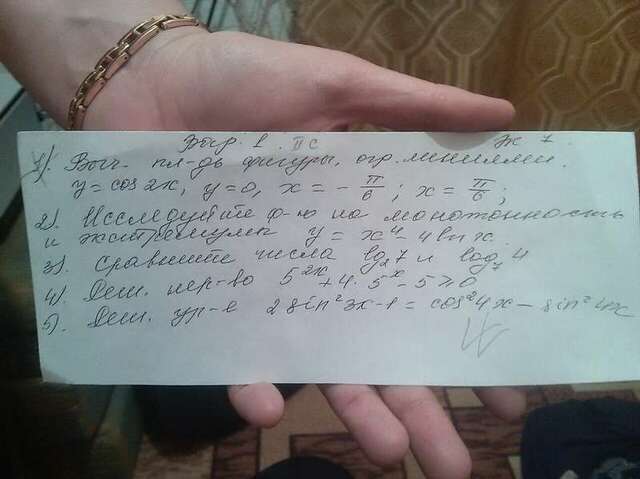 Вар. 1. IIс Эк 7
1). Выч. пл-дь фигуры, огр. линиями.
y = cos 2x, y = 0, x = - π/6 ; x = π/6 ;
2). Исследуйте ф-ю на монотонность
и экстремумы y = x⁴ - 4 ln x.
3). Сравните числа log₂7 и log₇4
4). Реш. нер-во 5²ˣ + 4 · 5ˣ - 5 ⩾ 0
5). Реш. ур-е 2 sin² 3x - 1 = cos² 4x - sin² 4x